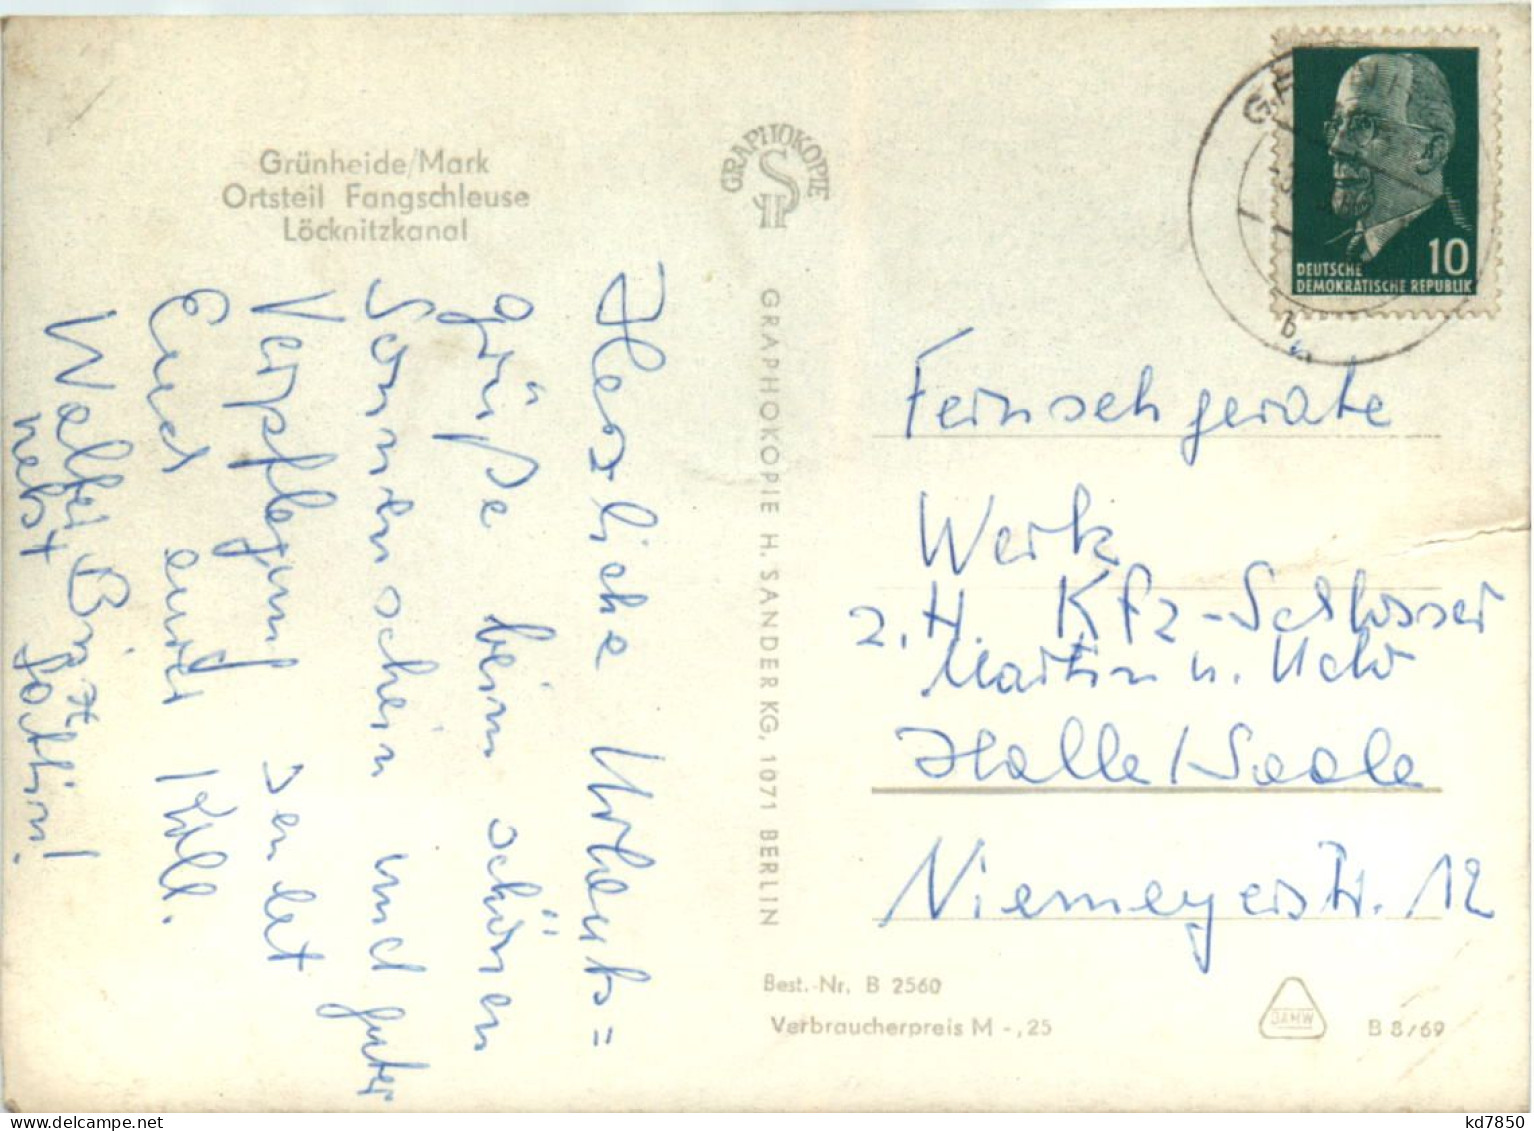 Grünheide/Mark
Ortsteil Fangschleuse
Löcknitzkanal
GRAPHOKOPIE
GRAPHOKOPIE H. SANDER KG, 1071 BERLIN
Herzliche Urlaubs=
grüße beim schönen
Sonnenschein und guter
Verpflegung sendet
Euch euer Koll.
Walter
nebst Gattin!
10
DEUTSCHE
DEMOKRATISCHE REPUBLIK
b
Fernsehgeräte
Werk
z. H. Kfz-Schlosser
Martin u. Udo
Halle/Saale
Niemeyerstr. 12
Best.-Nr. B 2560
Verbraucherpreis M -,25
DAMW
B 8/69
kd7850